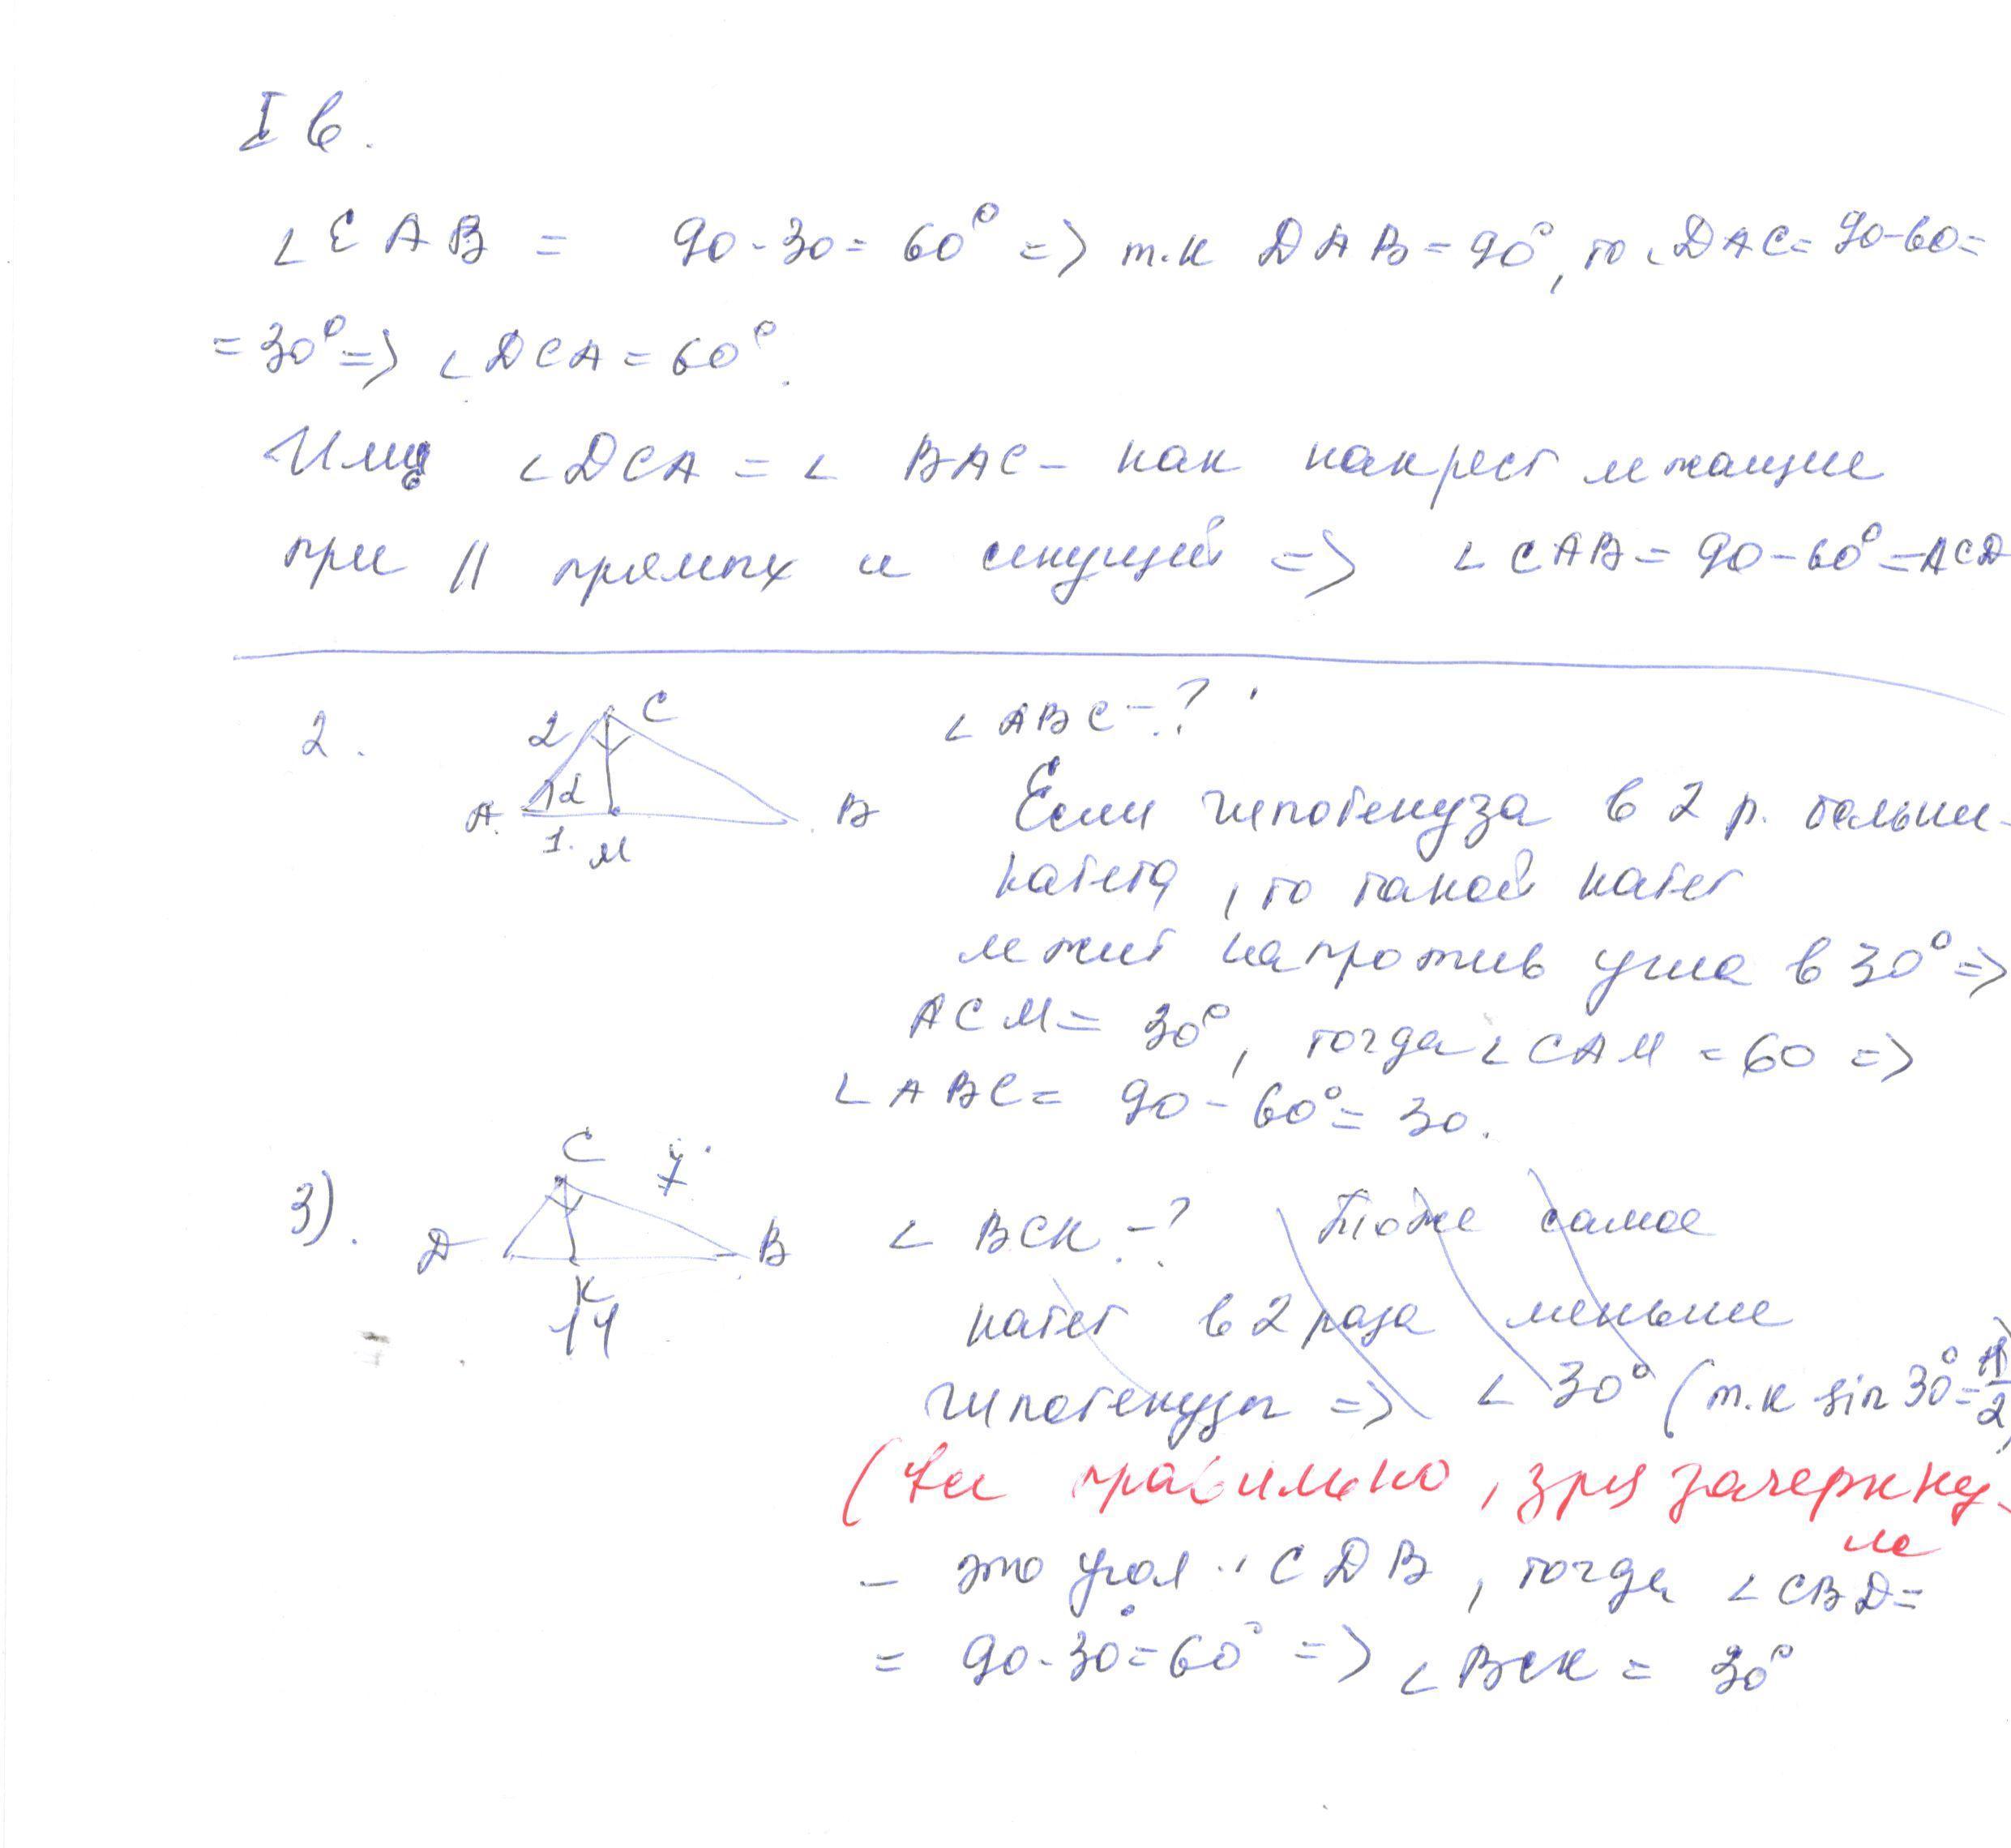 I в.
∠ЕАВ = 90-30=60° => т.к DАВ=90°, то ∠DАС=90-60=
=30°=> ∠DСА=60°.
Или ∠DСА=∠ ВАС- как накрест лежащие
при || прямых и секущей => ∠САВ=90-60°=АСD
2.
С
2
А
α
1.
М
В
∠АВС-?
Если гипотенуза в 2 р. больше
катета, то такой катет
лежит напротив угла в 30° =>
АСМ= 30°, тогда ∠САМ=60 =>
∠АВС= 90-60°=30.
3).
С
7
D
В
К
14
∠ВСК-? Тоже самое
катет в 2 раза меньше
гипотенузы => ∠30° (т.к sin30°=1/2)
(все правильно, зря зачеркну-
ли
- это угол ∠СDВ, тогда ∠СВD=
= 90-30=60° => ∠ВСК= 30°